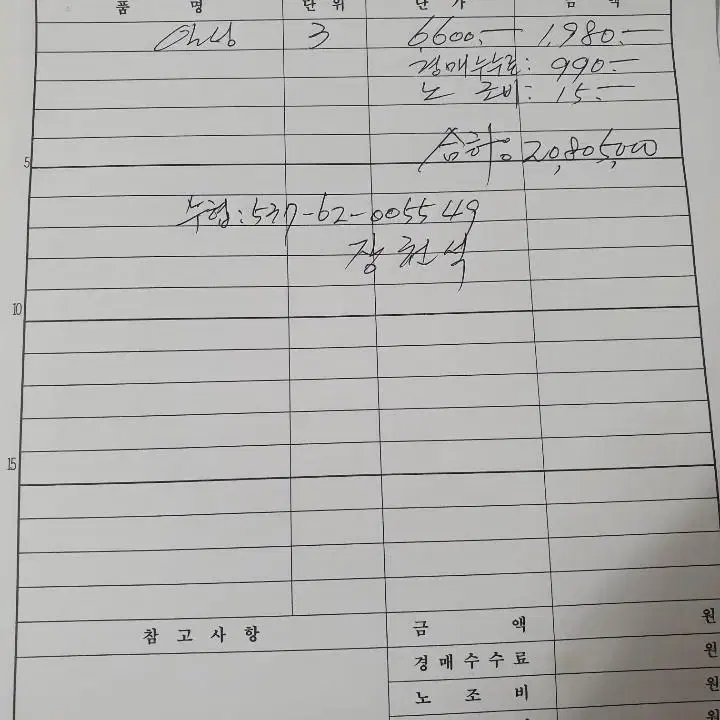 품 명 단 위 단 가 금 액
안성 3 6,600.- 1,980.-
경매수수료: 990.-
노 조비: 15.-
5 合計: 20,805,000
수협: 537-62-005549
장 원 석
10
15
참 고 사 항 금 액 원
경 매 수 수 료 원
노 조 비 원
원